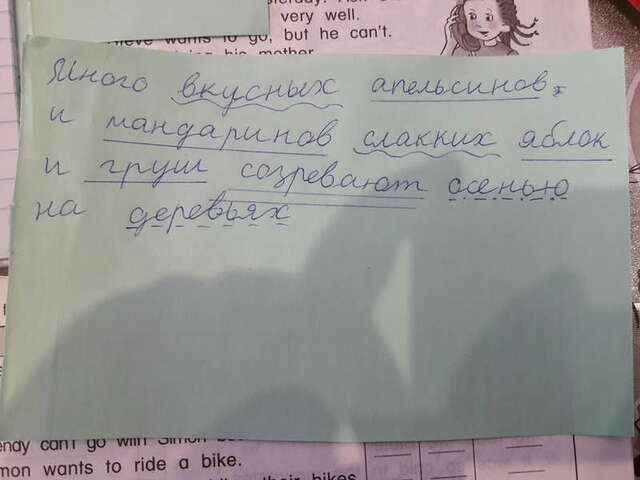 very well.
wants to go, but he can't.
his mother.
Много вкусных апельсинов,
и мандаринов слакких яблок
и груш созревают осенью
на деревьях
can't go with Simon
mon wants to ride a bike.
their bikes